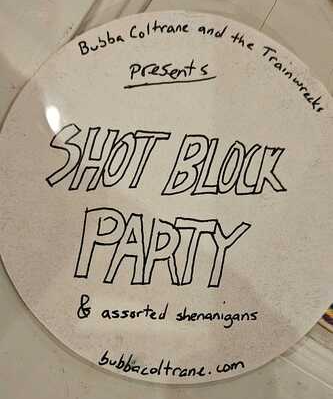 Bubba Coltrane and the Trainwrecks
presents
SHOT BLOCK
PARTY
& assorted shenanigans
bubbacoltrane.com